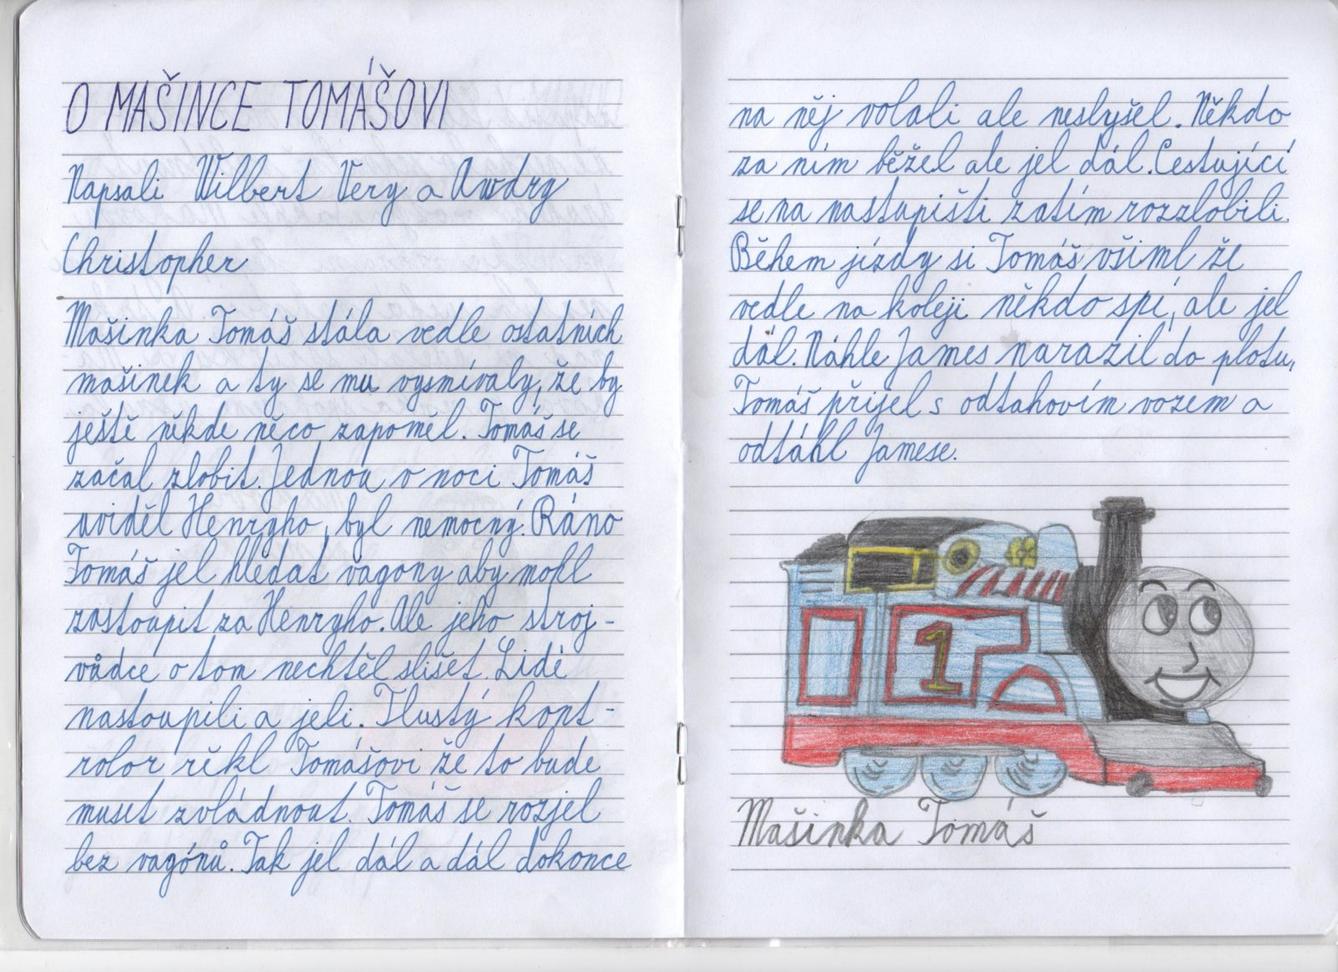 O MAŠINCE TOMÁŠOVI
Napsali Wilbert Very a Awdry
Christopher
Mašinka Tomáš stála vedle ostatních
mašinek a ty se mu vysmívaly, že by
ještě někde něco zapoměl. Tomáš se
začal zlobit. Jednou v noci Tomáš
uviděl Henryho, byl nemocný. Ráno
Tomáš jel hledat vagony aby mohl
zastoupit za Henryho. Ale jeho stroj-
vůdce o tom nechtěl slišet. Lidé
nastoupili a jeli. Tlustý kont-
rolor řekl Tomášovi že to bude
muset zvládnout. Tomáš se rozjel
bez vagónů. Tak jel dál a dál dokonce
na něj volali ale neslyšel. Někdo
za ním běžel ale jel dál. Cestující
se na nastupišti zatím rozzlobili.
Během jízdy si Tomáš všiml že
vedle na koleji někdo spí, ale jel
dál. Náhle James narazil do plotu,
Tomáš přijel s odtahovím vozem a
odtáhl Jamese.
1
Mašinka Tomáš